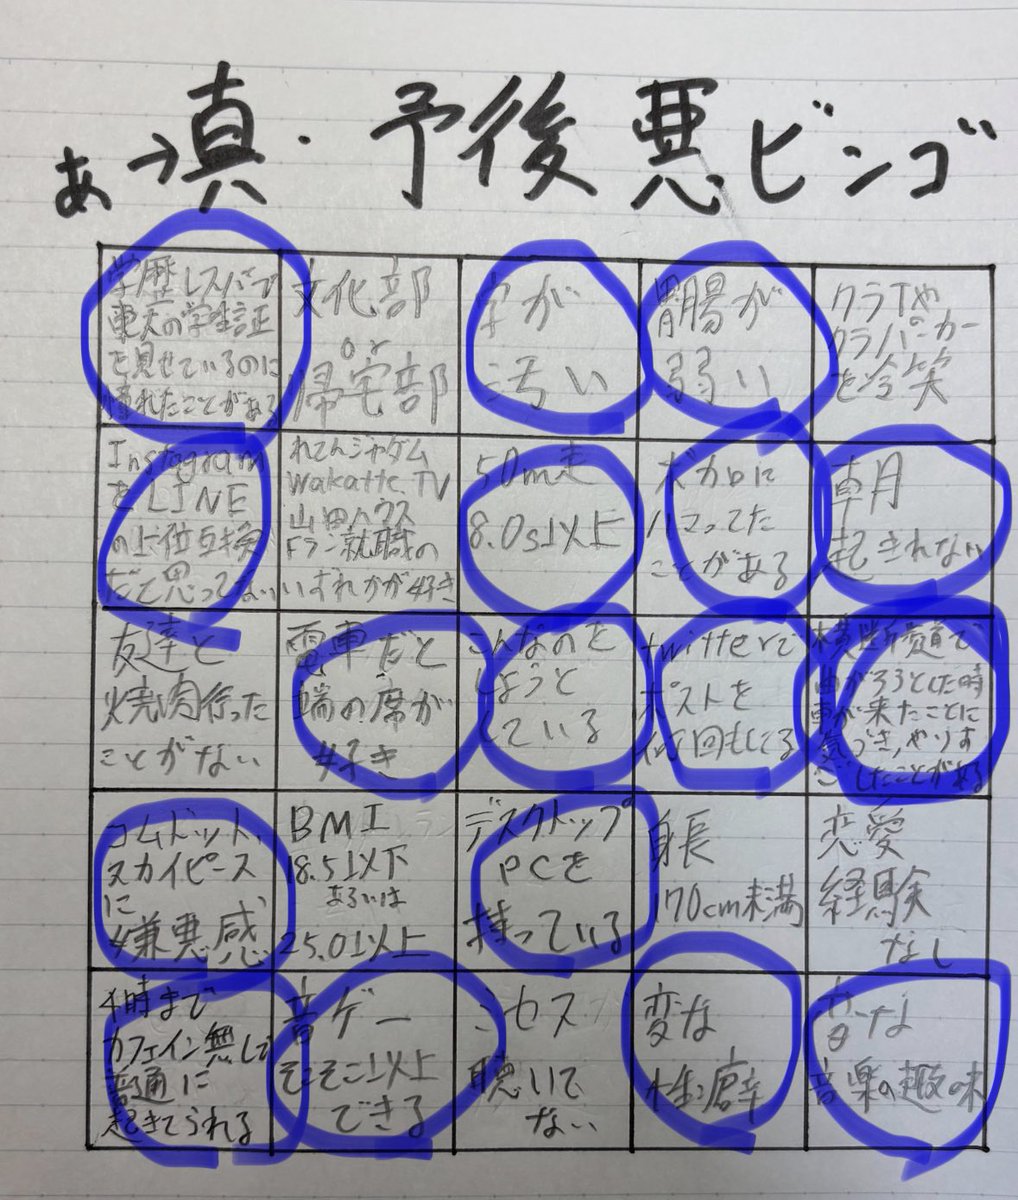 あ→真・予後悪ビンゴ
学歴レスバで
東大の学生証
を見せているのに
憧れたことがある
文化部
or
帰宅部
字が
汚い
胃腸が
弱い
クラTや
クラパーカー
を冷笑
Instagram
をLINE
の上位互換
だと思ってない
れてんジャダム
Wakatte.TV
山田ハウス
Fラン就職の
いずれかが好き
50m走
8.0s以上
ボカロに
ハマってた
ことがある
朝
起きれない
友達と
焼肉行った
ことがない
電車だと
端の席が
好き
こんなのを
しようと
している
twitterで
ポストを
何回もしてる
横断歩道で
曲がろうとした時
車が来たことに
気づき、やりす
ごしたことがある
コムドット、
スカイピース
に
嫌悪感
BMI
18.5以下
あるいは
25.0以上
デスクトップ
PCを
持っている
身長
170cm未満
恋愛
経験
なし
4時まで
カフェイン無しで
普通に
起きてられる
音ゲー
そこそこ以上
できる
ミセス
聴いて
ない
変な
性癖
変な
音楽の趣味